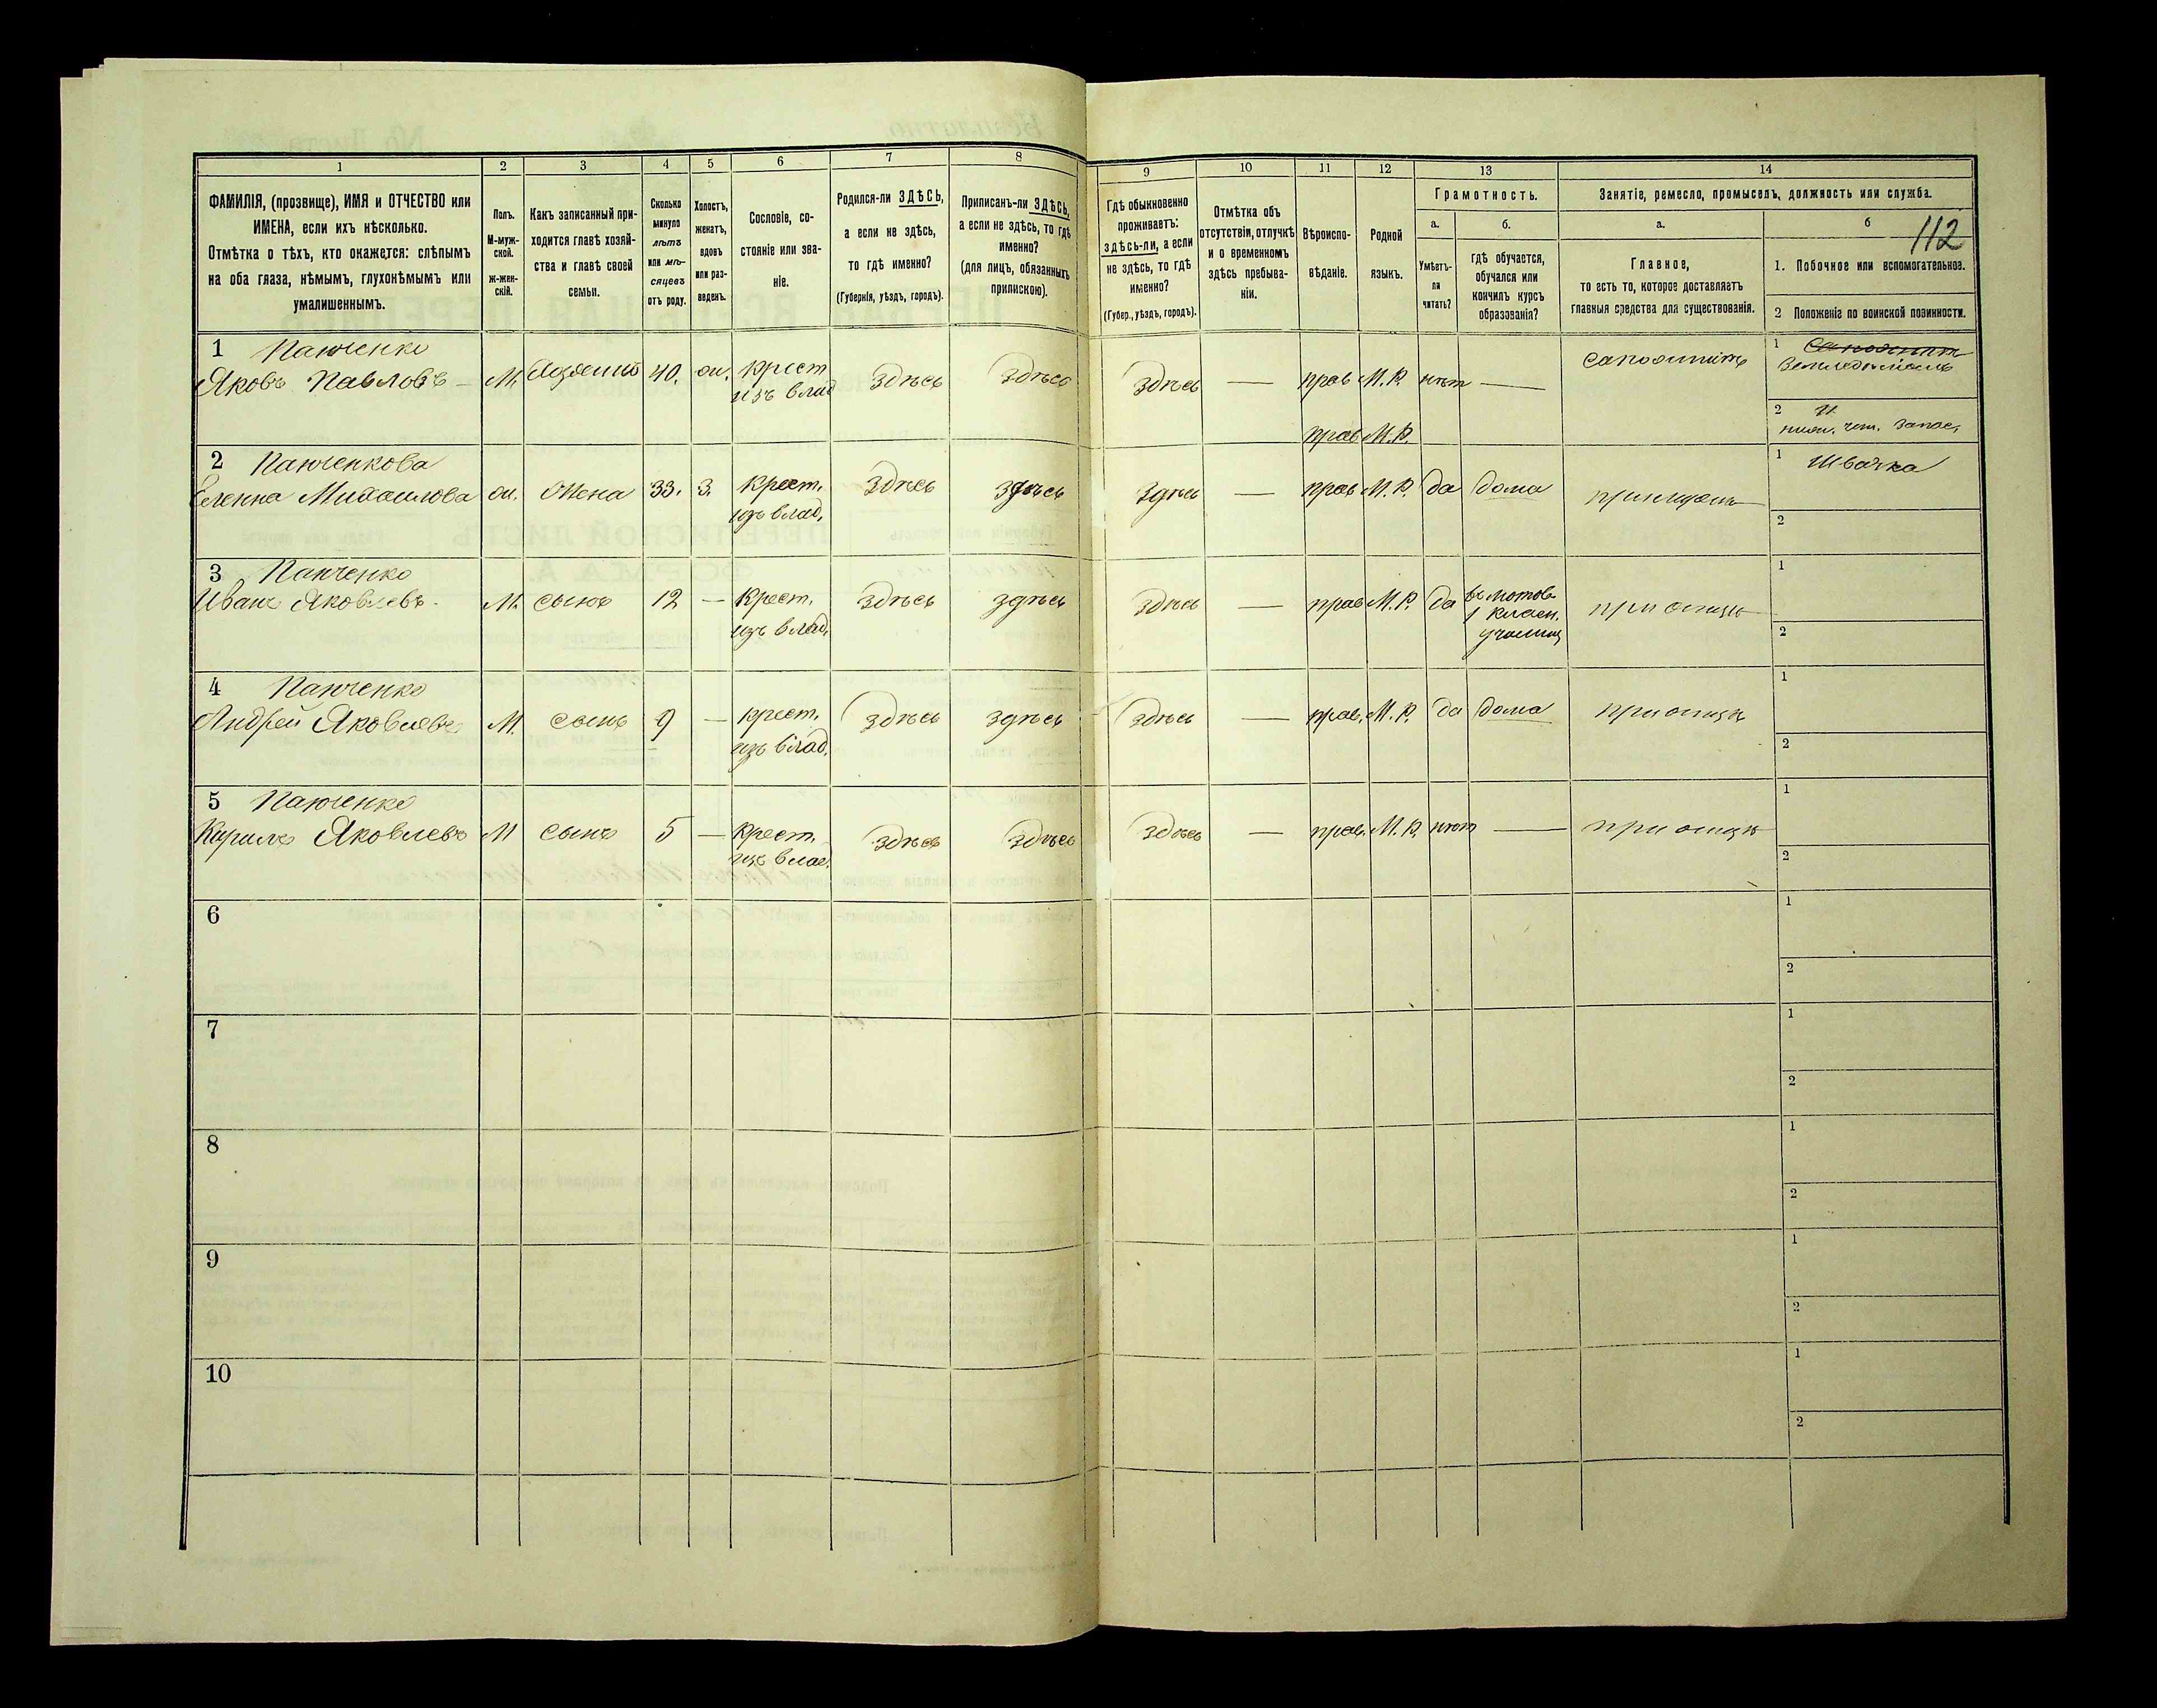 1
2
3
4
5
6
7
8
ФАМИЛІЯ, (прозвище), ИМЯ и ОТЧЕСТВО или
ИМЕНА, если ихъ нѣсколько.
Отмѣтка о тѣхъ, кто окажется: слѣпымъ
на оба глаза, нѣмымъ, глухонѣмымъ или
умалишеннымъ.
Полъ.
М-муж-
ской.
Ж-жен-
скій.
Какъ записанный при-
ходится главѣ хозяй-
ства и главѣ своей
семьи.
Сколько
минуло
лѣтъ
или мѣ-
сяцевъ
отъ роду.
Холостъ,
женатъ,
вдовъ
или раз-
веденъ.
Сословіе, со-
стояніе или зва-
ніе.
Родился-ли ЗДѢСЬ,
а если не здѣсь,
то гдѣ именно?
(Губернія, уѣздъ, городъ).
Приписанъ-ли ЗДѢСЬ,
а если не здѣсь, то гдѣ
именно?
(для лицъ, обязанныхъ
припискою).
9
10
11
12
13
14
Гдѣ обыкновенно
проживаетъ:
здѣсь-ли, а если
не здѣсь, то гдѣ
именно?
(Губер., уѣздъ, городъ).
Отмѣтка объ
отсутствіи, отлучкѣ
и о временномъ
здѣсь пребыва-
ніи.
Вѣроиспо-
вѣданіе.
Родной
языкъ.
Грамотность.
а.
Умѣетъ-
ли
читать?
б.
гдѣ обучается,
обучался или
кончилъ курсъ
образованія?
Занятіе, ремесло, промыселъ, должность или служба.
а.
Главное,
то есть то, которое доставляетъ
главныя средства для существованія.
б
112
1. Побочное или вспомогательное.
2 Положеніе по воинской повинности.
1 Панченко
Яковъ Павловъ — М. 40. ж. крест. изъ влад. здѣсь здѣсь здѣсь — прав М.Р. нѣтъ —
1
2
прав М.Р.
2 Панченкова
Михаилова ж. жена 33. З. крест. изъ влад. здѣсь здѣсь здѣсь — прав М.Р. да дома
1 Швачка
2
3 Панченко
Иванъ Яковлевъ М. сынъ 12 — крест. изъ влад. здѣсь здѣсь здѣсь — прав М.Р. да 1 класн. училищ при отцѣ
1
2
4 Панченко
Андрей Яковлевъ М. сынъ 9 — крест. изъ влад. здѣсь здѣсь здѣсь — прав. М.Р. да дома при отцѣ
1
2
5 Панченко
Кирилъ Яковлевъ М сынъ 5 — крест. изъ влад. здѣсь здѣсь здѣсь — прав. М.Р. нѣтъ — при отцѣ
1
2
6
1
2
7
1
2
8
1
2
9
1
2
10
1
2